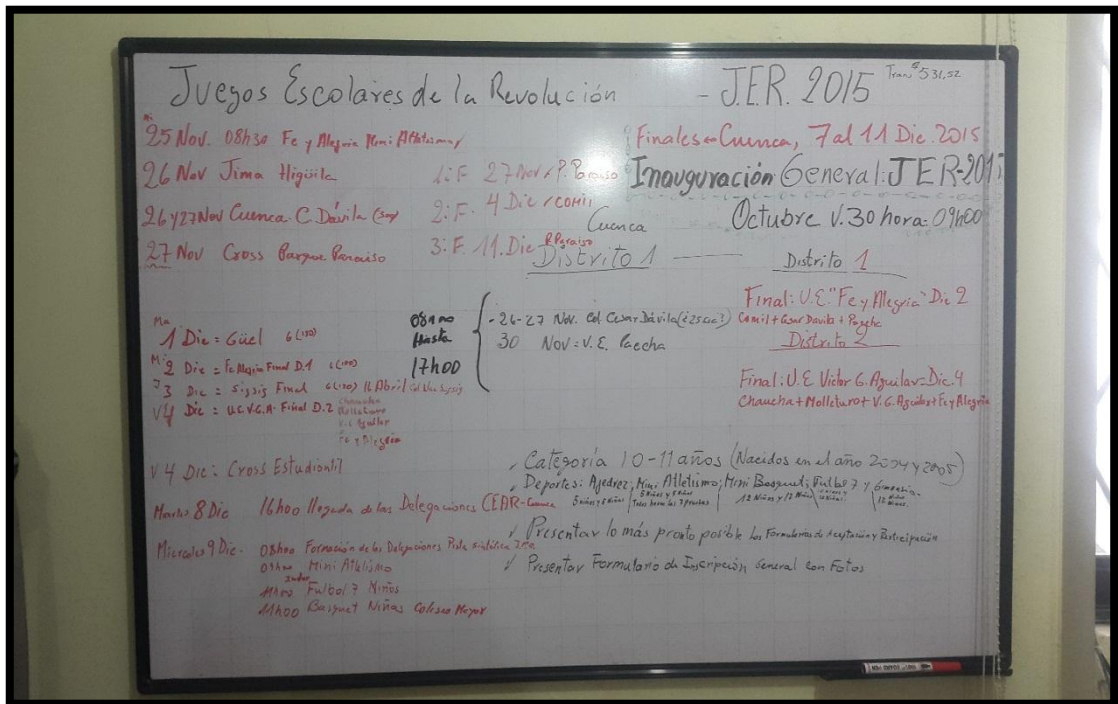 Juegos Escolares de la Revolución - J.E.R. 2015
Tran $531,52
Mi
25 Nov. 08h30 Fe y Alegría Mini Atletismo
26 Nov Jima Higüila
26 y 27 Nov Cuenca. C. Dávila
27 Nov Cross Parque Paraiso
1: F 27 Nov P. Paraiso
2: F. 4 Die
3: F. 11. Die P. Paraiso
Finales Cuenca, 7 al 11 Dic. 2015
Inauguración General: JER-2015
Octubre V. 30 hora: 09h00
Cuenca
Distrito 1
Distrito 1
Final: U.E. "Fe y Alegria" Dic 2
Comil + Cesar Davila + Paccha
Distrito 2
Final: U.E Victor G. Aguilar = Dic. 4
Chaucha + Molleturo + V.G. Aguilar + Fe y Alegría
Ma
1 Die = Güel 6 (130)
Mi 2 Die = Fe Alegria Final D.1
J 3 Die = Sigsig Final 16 Abril
V 4 Die = U.E.V.G.A. Final D.2
Chaucha
Molleturo
V.G Aguilar
Fe y Alegria
08h00
Hasta
17h00
- 26-27 Nov. Col Cesar Dávila
30 Nov = U.E. Paccha
V 4 Dic: Cross Estudiantil
Martes 8 Dic 16h00 llegada de las Delegaciones CEAR-Cuenca
Miercoles 9 Dic. 08h00 Formación de las Delegaciones Pista sintética
09h00 Mini Atletismo
Indor
11h00 Futbol 7 Niños
11h00 Basquet Niñas Coliseo Mayor
Categoría 10-11 años (Nacidos en el año 2004 y 2005)
Deportes: Ajedrez; Mini Atletismo; Mini Basquet; Futbol 7 y Gimnasia.
5 niños y 5 Niñas
5 Niñas y 5 Niños
Todos hacen las 7 pruebas
12 Niñas y 12 Niños
✓ Presentar lo más pronto posible los Formularios de Aceptación y Participación
✓ Presentar Formulario de Inscripción General con Fotos